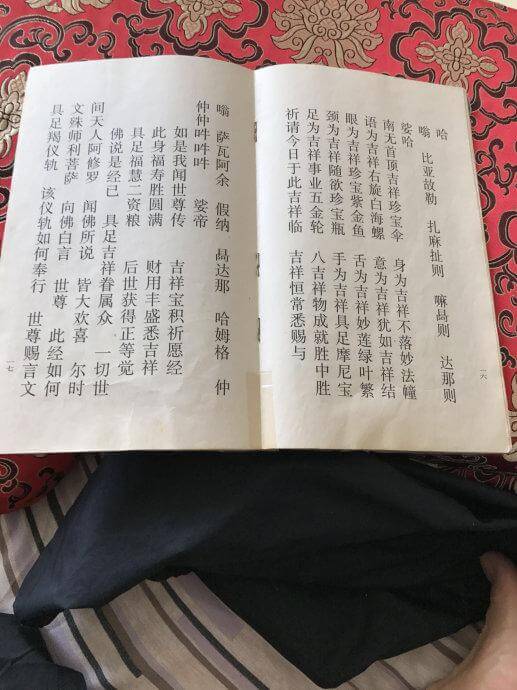 哈
嗡 比亚故勒 扎麻扯则 嘛曷则 达那则
娑哈
南无首顶吉祥珍宝伞 身为吉祥不落妙法幢
语为吉祥右旋白海螺 意为吉祥犹如吉祥结
眼为吉祥珍宝紫金鱼 舌为吉祥妙莲绿叶繁
颈为吉祥随欲珍宝瓶 手为吉祥具足摩尼宝
足为吉祥事业五金轮 八吉祥物成就胜中胜
祈请今日于此吉祥临 吉祥恒常悉赐与
一六
嗡 萨瓦阿余 假纳 曷达那 哈姆格 仲
仲仲吽吽吽 娑帝
如是我闻世尊传 吉祥宝积祈愿经
此身福寿胜圆满 财用丰盛悉吉祥
具足福慧二资粮 后世获得正等觉
佛说是经已 具足吉祥眷属众 一切世
间天人阿修罗 闻佛所说 皆大欢喜 尔时
文殊师利菩萨 向佛白言 世尊 此经如何
具足羯仪轨 该仪轨如何奉行 世尊赐言文
一七